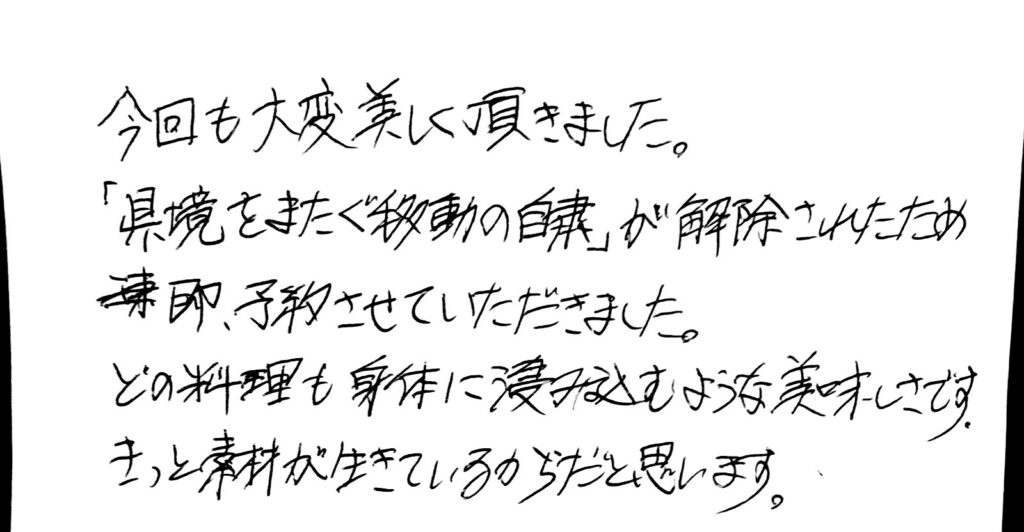 今回も大変美しく頂きました。
「県境をまたぐ移動の自粛」が解除されたため
速即、予約させていただきました。
どの料理も身体に浸み込むような美味しさです。
きっと素材が生きているからだと思います。